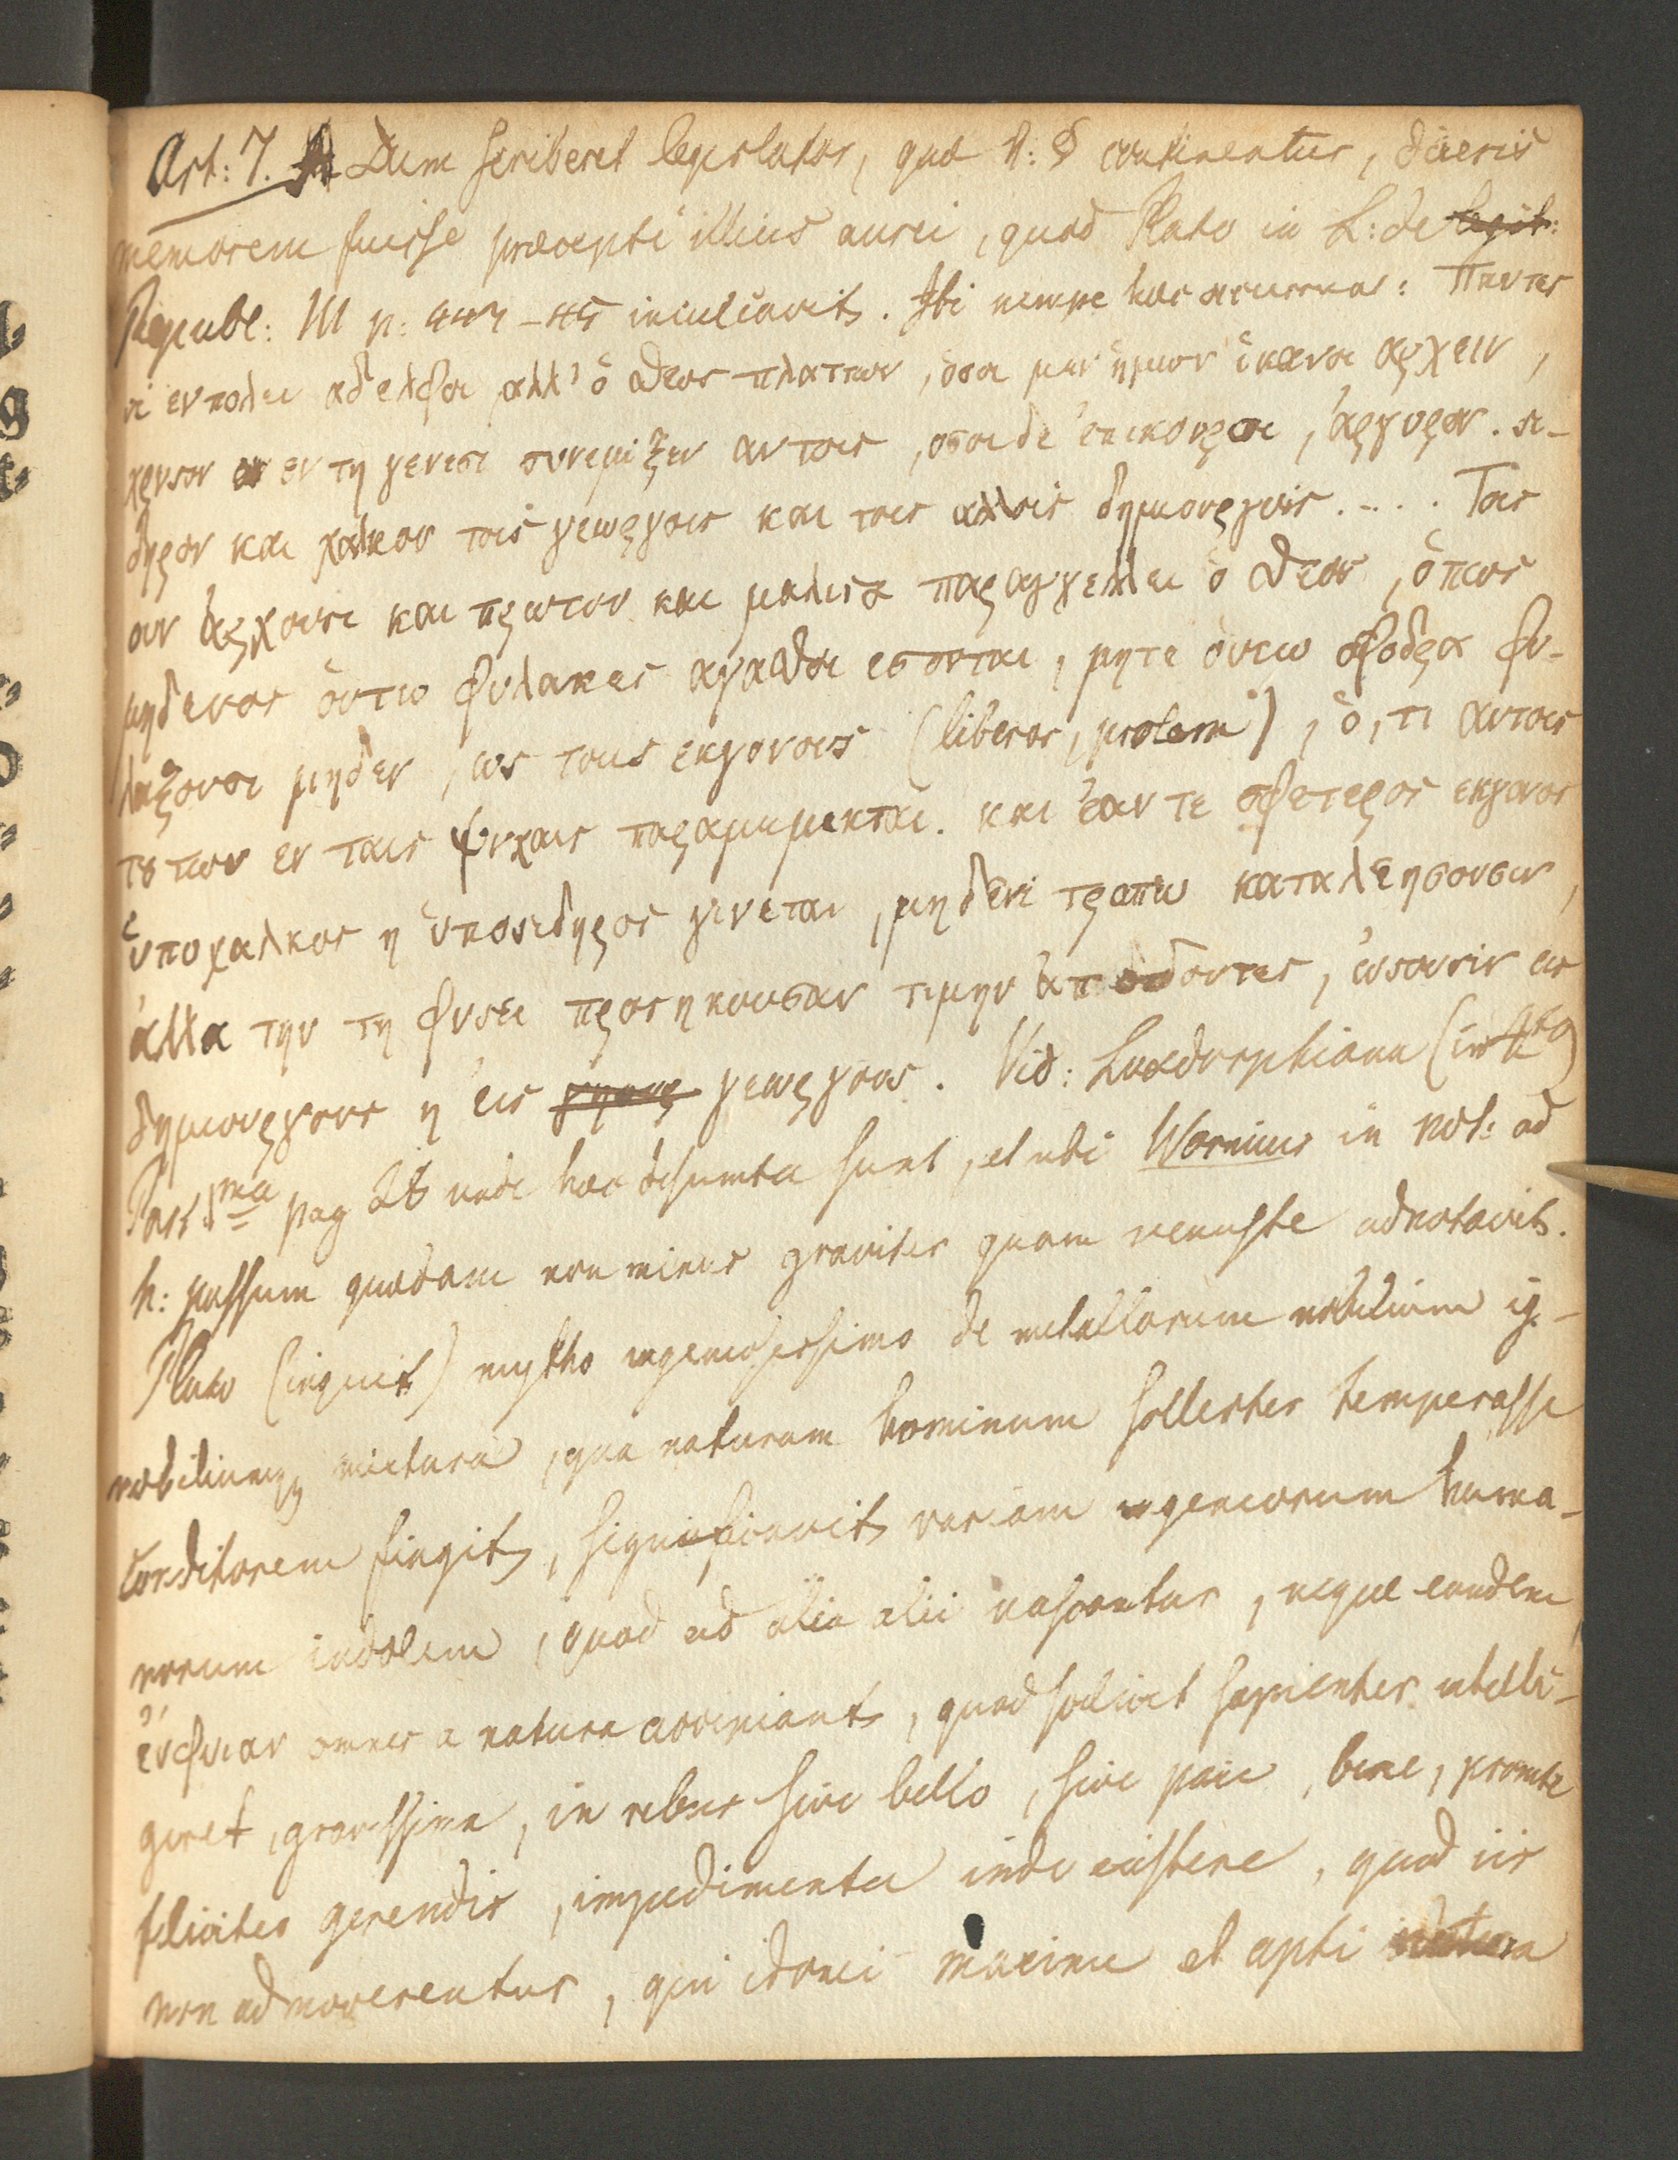 Art: 7. Dum scriberet legislator, quæ h: § continentur, dixeris
memorem fuisse præcepti illius aurei, quod Plato in L: de legib:
Republ: III p: 444-45 inculcavit. Ibi nempe hæc : Παντες
οἱ εν πολει αδελφοι, αλλ' ὁ θεος πλαττων, ὁσοι μεν ημων ἱκανοι αρχειν,
χρυσον εν τη γενεσι συνεμιξεν αυτοις, οσοι δε ἐπικουροι, ἀργυρον. σι-
δηρον και χαλκον τοις γεωργοις και τοις αλλοις δημιουργοις. ... Τοις
ουν ἀρχουσι και πρωτον και μαλιστα παραγγελλει ὁ θεος, ὁπως
μηδενος ὁυτω φυλακες αγαθοι εσονται, μητε ὁυτω σφοδρα φυ-
λαξουσι μηδεν, ως τους εκγονους (liberos, prolem), ὁ, τι αυτοις
τουτων εν ταις ψυχαις παραμεμικται. και ἐαν τε σφετερος εκγονος
ὑποχαλκος η ὑποσιδηρος γενεται, μηδενι τροπω κατελεησουσιν,
ἀλλα την τη φυσει προσηκουσαν τιμην ἀποδοντες, ὠσουσιν εις
δημιουργους η ἐις γεωργους. Vid: Luxdorphiana (in 4to)
Part. 1ma pag 26 unde hæc desumta sunt, et ubi Wormius in not: ad
h: passum quædam non minus graviter quam venuste adnotavit.
Plato (inquit) mytho ingeniosissimo de metallorum nobilium ig-
nobiliumq; mictura, qua naturam hominum sollerter temperasse
Conditorem fingit, significavit variam ingeniorum huma-
norum indolem, quod ad alia alii nascantur, neque eandem
ἐυφυιαν omnes a natura accipiant, quod scilicet sapienter intelli-
geret, gravissima, in rebus sive bello, sive pace, bene, promte
feliciter gerendis, impedimenta inde existere, quod iis
non admoverentur, qui idonei maxime et apti natura